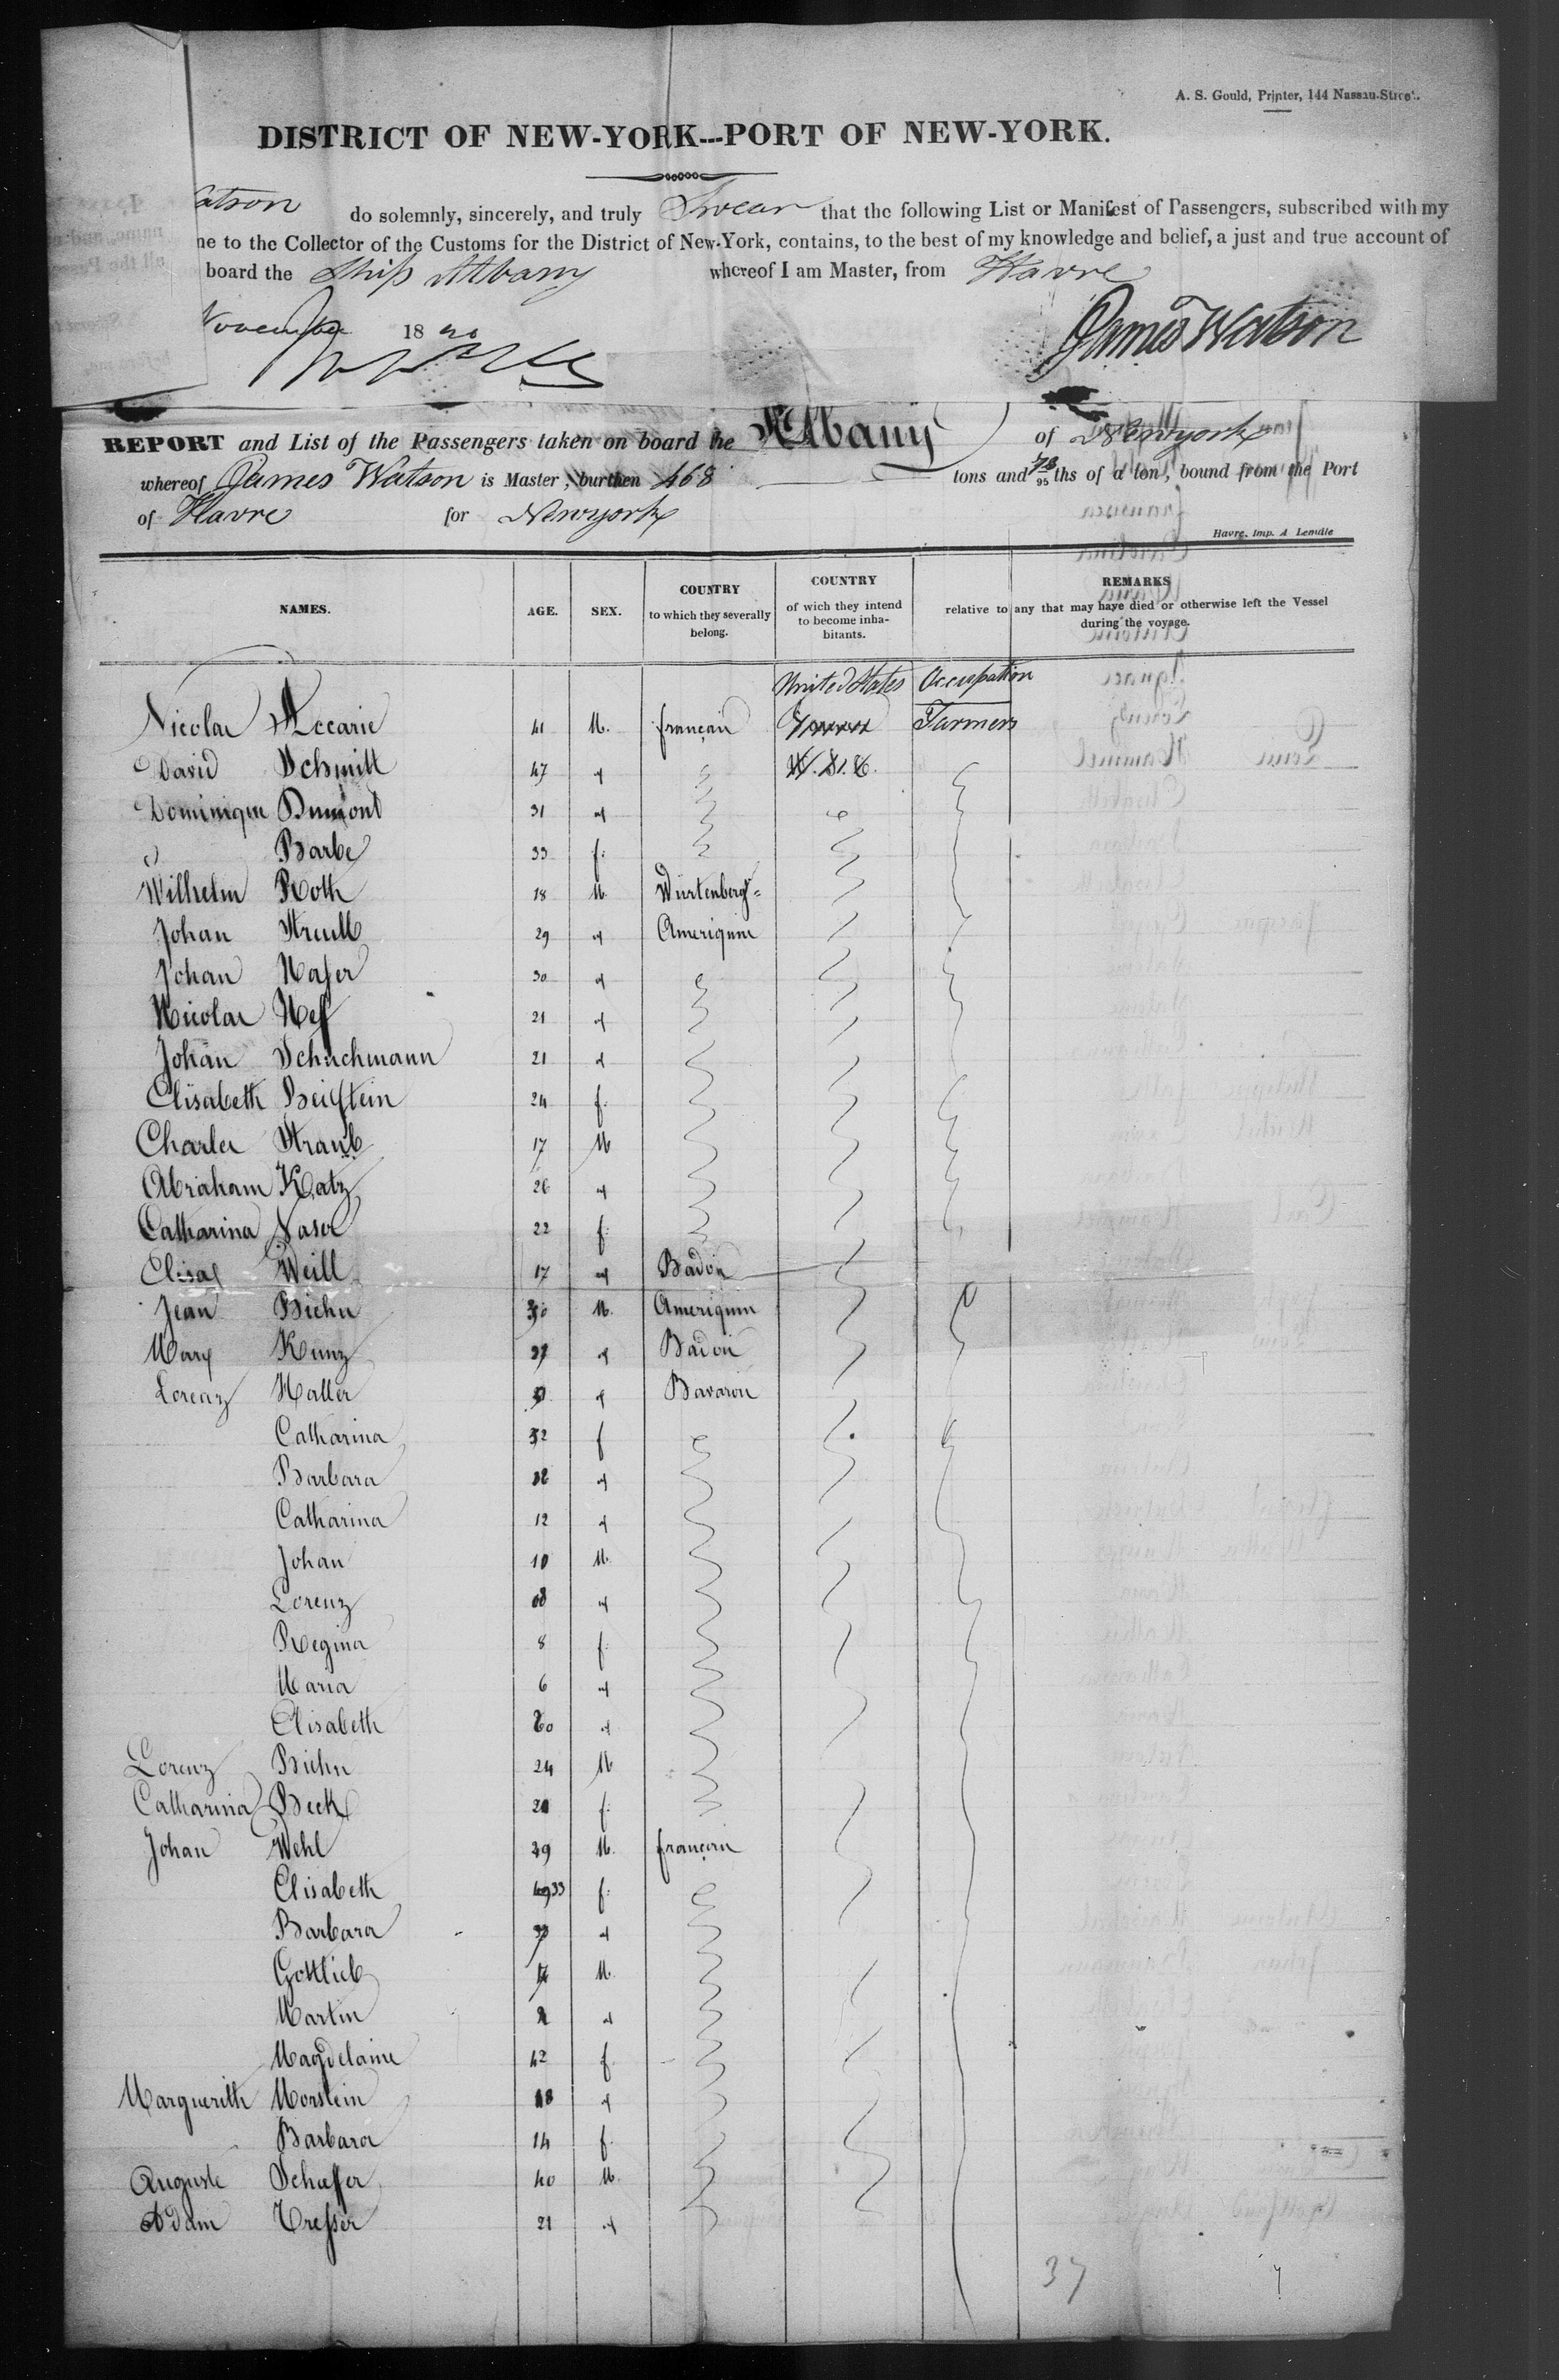 A. S. Gould, Printer, 144 Nassau-Street.
DISTRICT OF NEW-YORK---PORT OF NEW-YORK.
atson do solemnly, sincerely, and truly Swear that the following List or Manifest of Passengers, subscribed with my
ne to the Collector of the Customs for the District of New-York, contains, to the best of my knowledge and belief, a just and true account of
board the Ship Albany whereof I am Master, from Havre
November 1840
James Watson
REPORT and List of the Passengers taken on board the Albany of Newyork
whereof James Watson is Master, burthen 468 tons and 78/95 ths of a ton, bound from the Port
of Havre for Newyork
Havre, imp. A Lemâle
NAMES. AGE. SEX. COUNTRY to which they severally belong. COUNTRY of wich they intend to become inhabitants. REMARKS relative to any that may have died or otherwise left the Vessel during the voyage.
United States Occupation
Nicolas Accarie 41 M. français Farmers
David Schmitt 47 " U. St.
Dominique Dumont 31 "
" Barbe 33 f.
Wilhelm Roth 18 M. Würtenberg=
Johan Streull 29 " Ameriquin
Johan Haser 30 "
Nicolas Nef 21 "
Johan Schuchmann 21 "
Elisabeth Beilstein 24 f.
Charles Straub 17 M
Abraham Katz 26 "
Catharina Naser 22 f.
Weill 17 " Badois
Jean Biehn 30 M. Ameriquin
Mary Kunz " Badois
Lorenz Haller " Bavarois
Catharina 32 f
Barbara "
Catharina 12 "
Johan 10 M.
Lorenz "
Regina 8 f.
Maria 6 "
Elisabeth "
Lorenz Biehn 24 M
Catharina Beck f.
Johan Wehl 39 M. français
Elisabeth 33 f.
Barbara "
Gottlieb M.
Martin "
Magdelaine 42 f.
Marguerith Morstein 18 "
Barbara 14 f.
Auguste Schaffer 40 M.
Adam Tresser 21 "
37